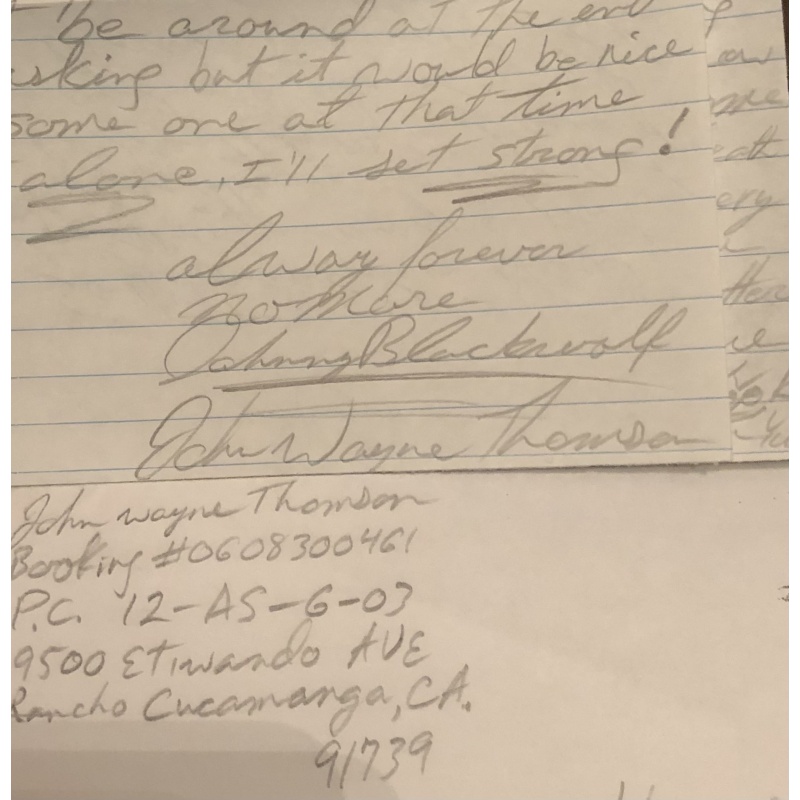 be around at the end
asking but it would be nice
some one at that time
alone, I'll set strong!
alway forever
no more
Johnny Blackwolf
John Wayne Thomson
John Wayne Thomson
Booking #0608300461
P.C. 12-AS-6-03
9500 Etiwando AVE
Rancho Cucamonga, CA.
91739
ery